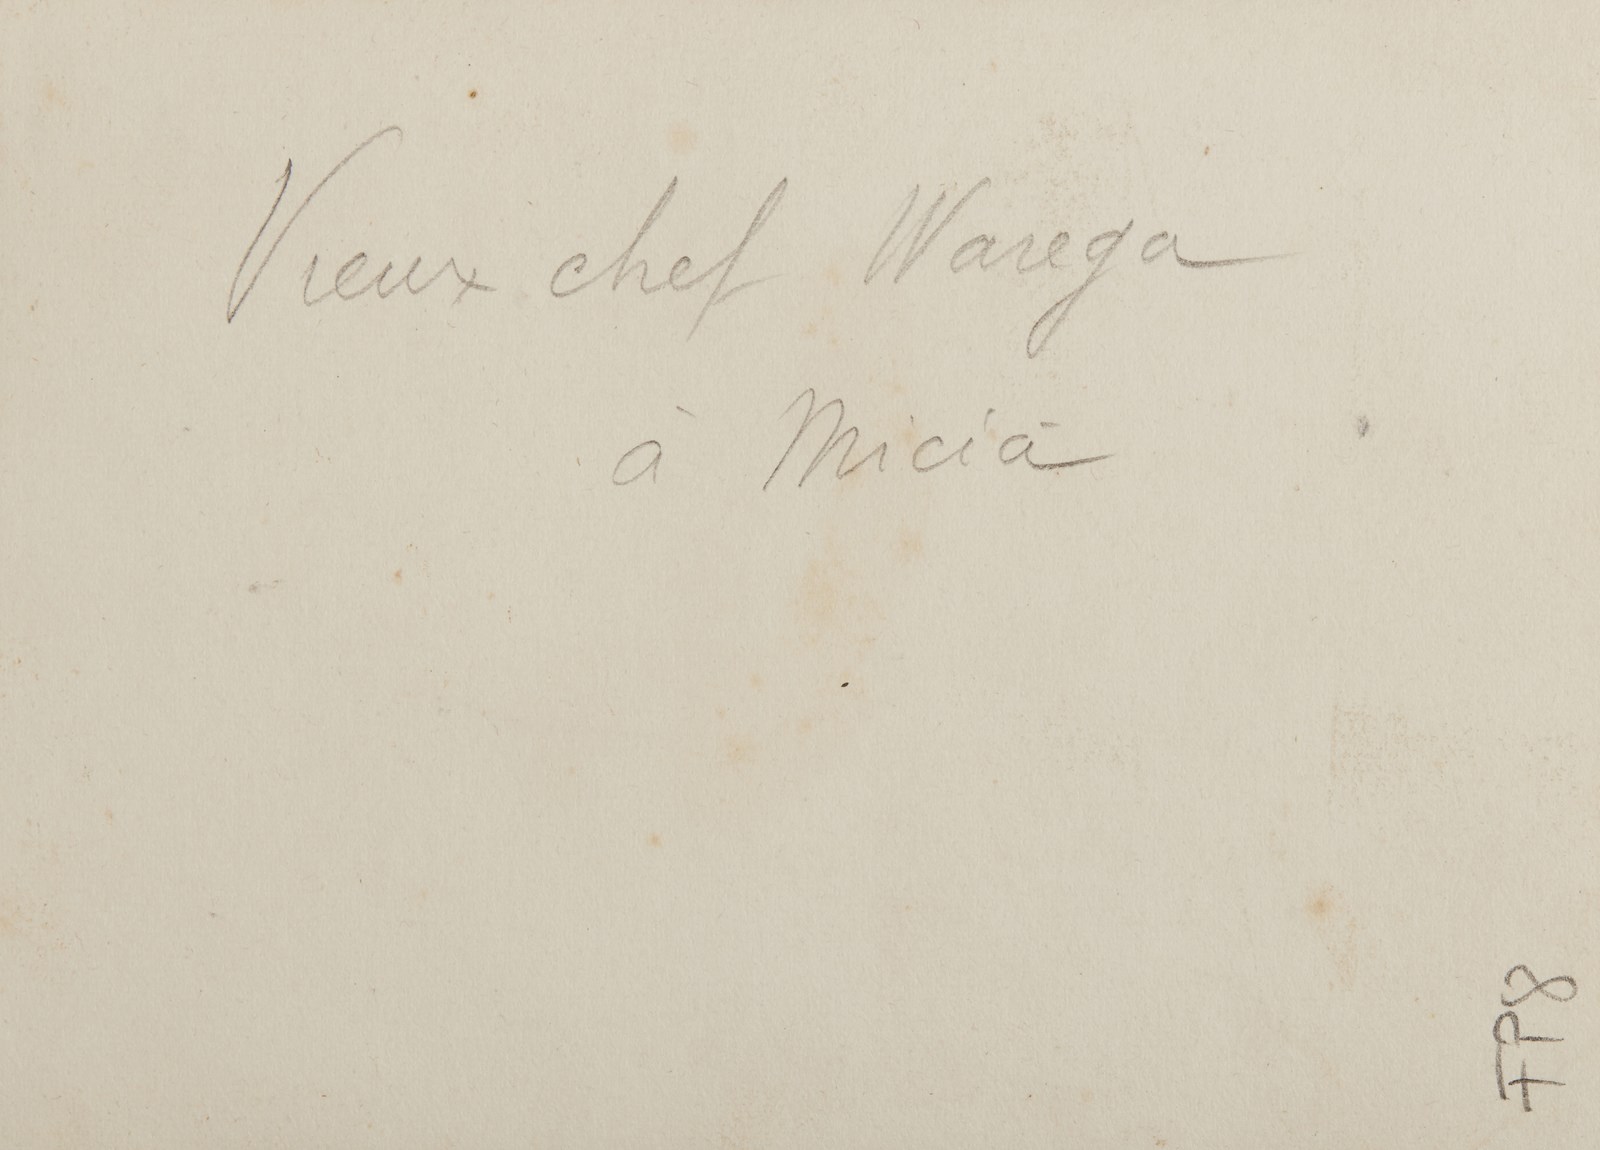 Vieux chef Warega
à Micia
FP8